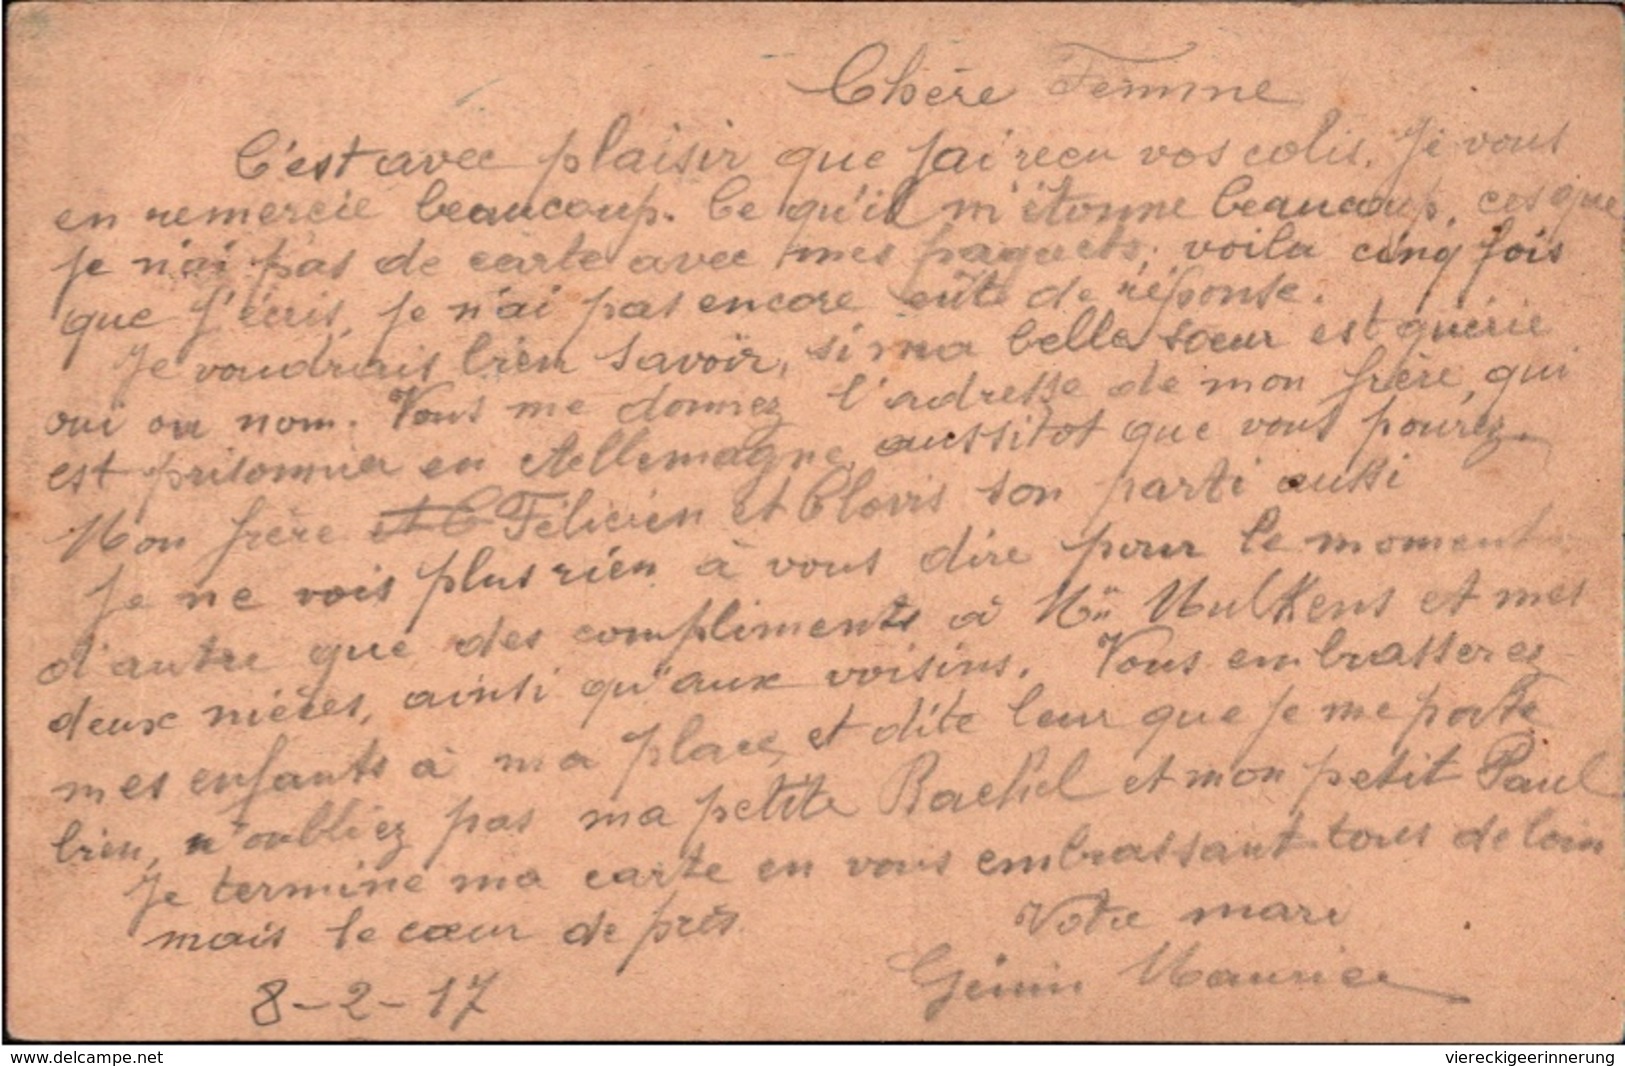 Chère Femme
C'est avec plaisir que j'ai reçu vos colis. Je vous
en remercie beaucoup. Ce qu'il m'étonne beaucoup, ces que
je n'ai pas de carte avec mes paquets, voila cinq fois
que j'écris, je n'ai pas encore eût de réponse.
Je voudrais bien savoir, si ma belle sœur est quérie
oui ou nom. Vous me donnez l'adresse de mon frère, qui
est prisonnier en Allemagne, aussitot que vous pourez.
Mon frère et C Félicien et Clovis son parti aussi
Je ne vois plus rien à vous dire pour le moment
d'autre que des compliments à Mulkens et mes
deux nièces, ainsi qu'aux voisins. Vous embrasserez
mes enfants à ma place, et dite leur que je me porte
bien, n'oubliez pas ma petite Rachel et mon petit Paul
Je termine ma carte en vous embrassant tous de loin
mais le cœur de près.
Votre mari
Génin Maurice
8-2-17
www.delcampe.net
viereckigeerinnerung